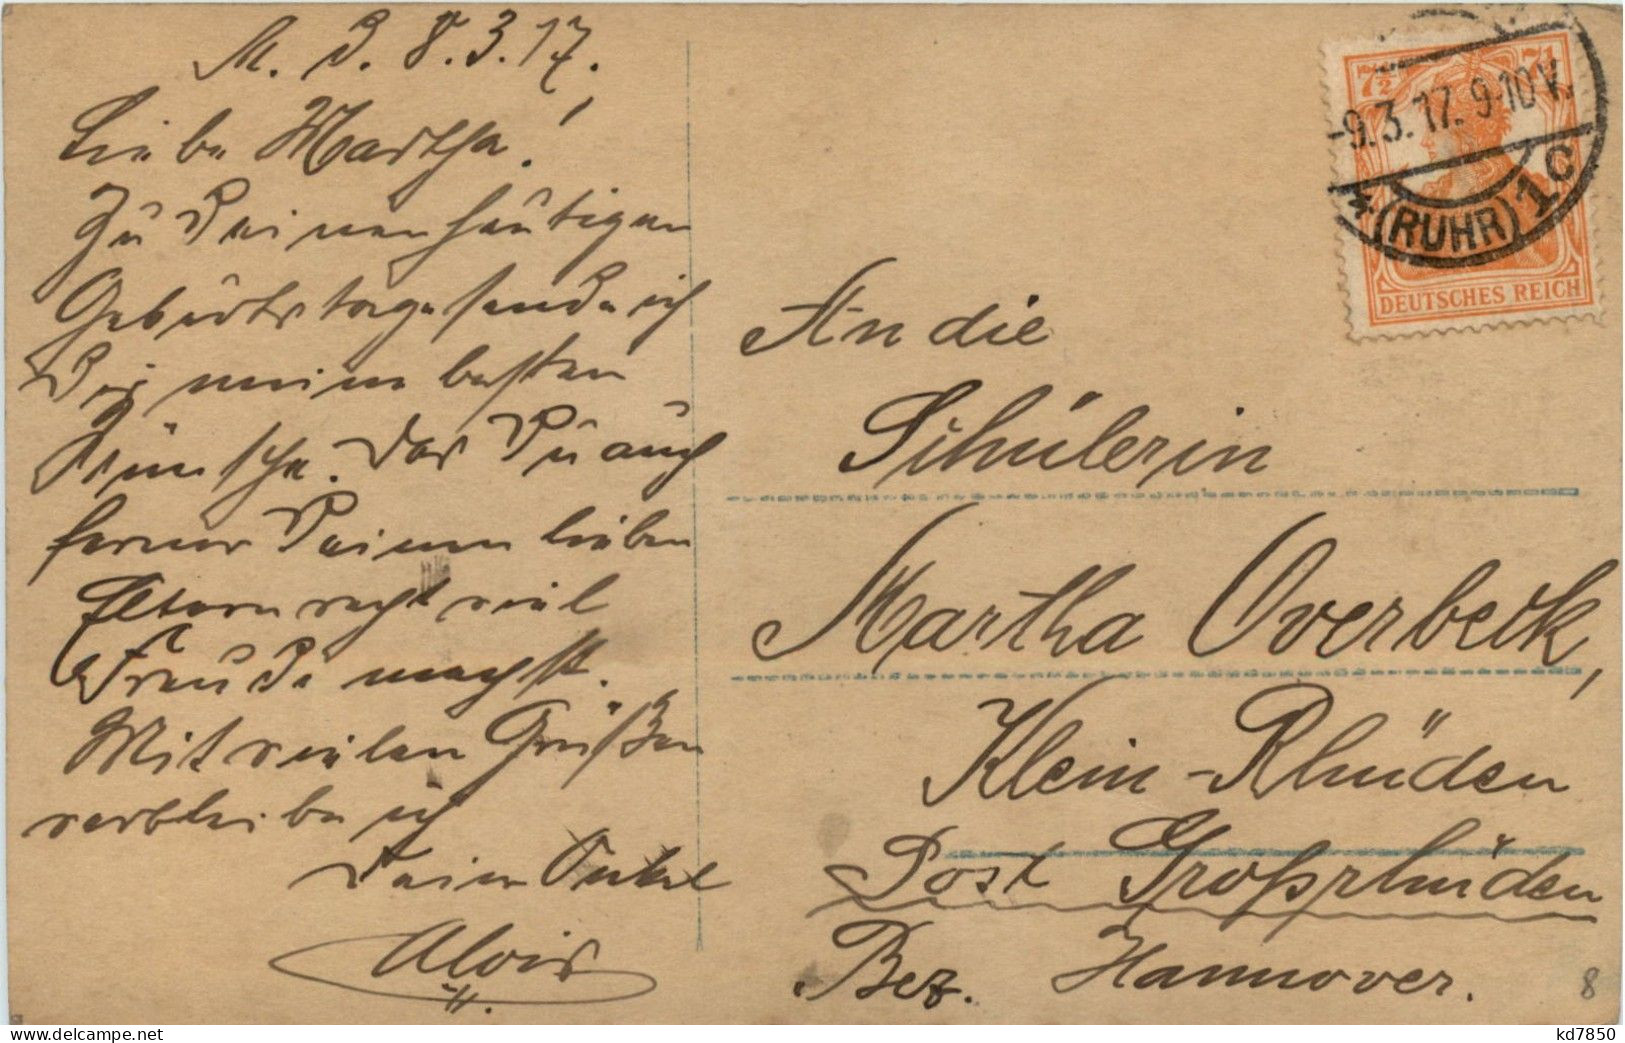 M. d. 8.3.17.
Liebe Martha!
Zu Deinem heutigen
Geburtstage sende ich
Dir meine besten
Wünsche. Das Du auch
ferner Deinen lieben
Eltern recht viel
Freude machst.
Mit vielen Grüßen
verbleibe ich
Dein Onkel
Alois
7½ 7½
-9.3.17. 9-10V.
* (RUHR) 1c
DEUTSCHES REICH
An die
Schülerin
Martha Overbeck,
Klein-Rhüden
Post Großrhüden
Bez. Hannover.
8
kd7850